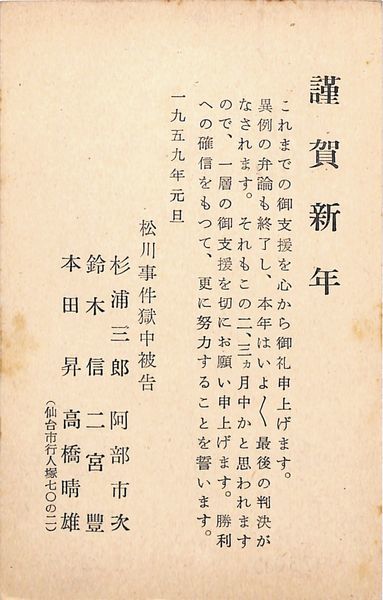 謹賀新年
これまでの御支援を心から御礼申上げます。
異例の弁論も終了し、本年はいよ〳〵最後の判決が
なされます。それもこの二、三ヵ月中かと思われます
ので、一層の御支援を切にお願い申上げます。勝利
への確信をもつて、更に努力することを誓います。
一九五九年元旦
松川事件獄中被告
杉浦三郎 阿部市次
鈴木信 二宮豐
本田昇 高橋晴雄
(仙台市行人塚七〇の二)